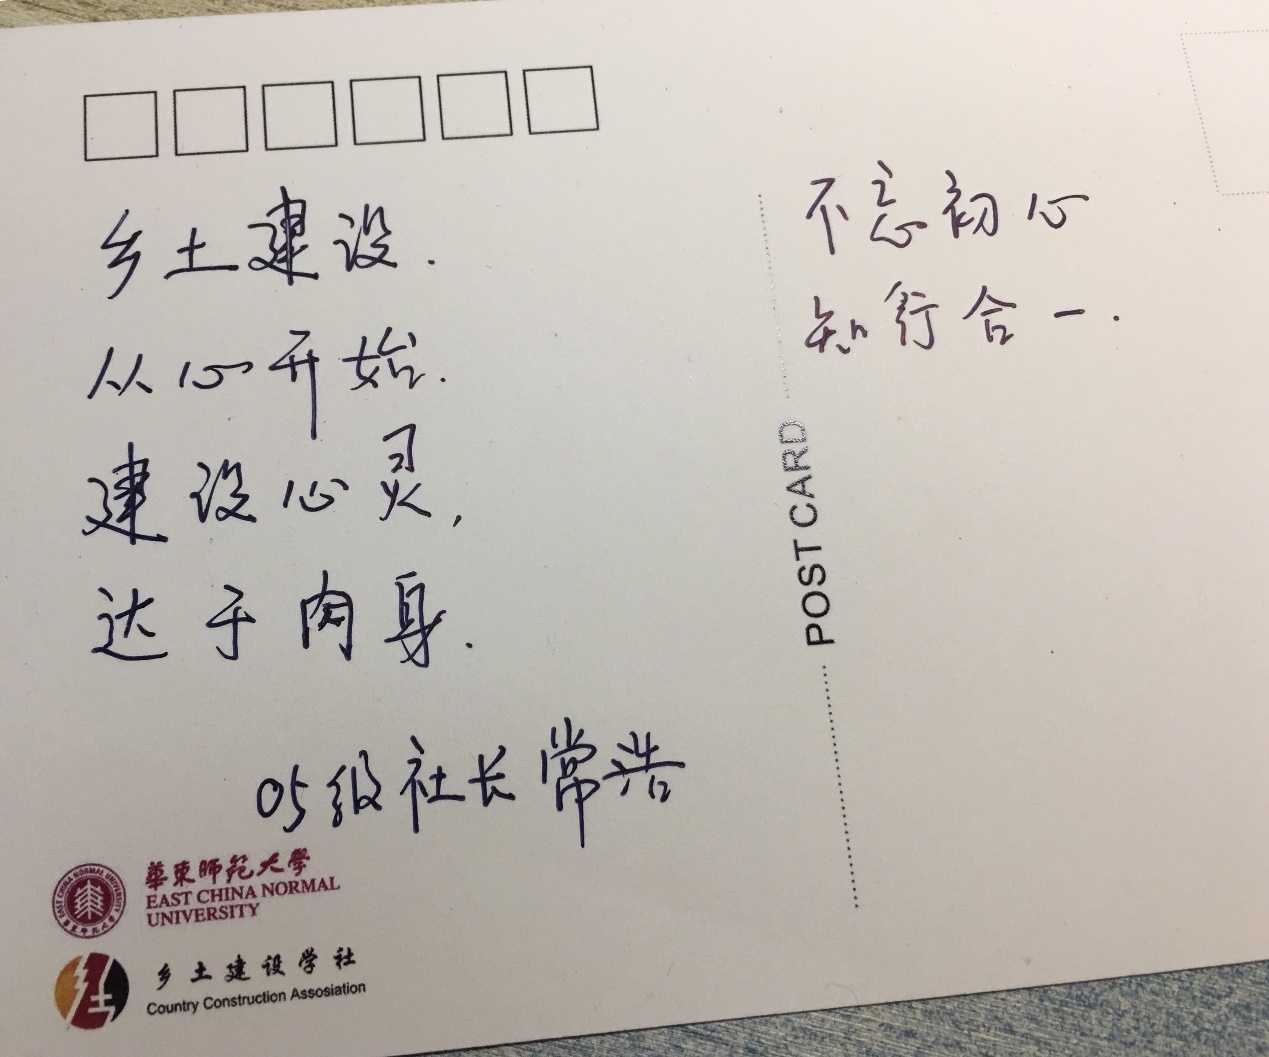 乡土建设.
从心开始.
建设心灵,
达于肉身.
05级社长常浩
不忘初心
知行合一.
POST CARD
華東師範大學
EAST CHINA NORMAL
UNIVERSITY
乡土建设学社
Country Construction Assosiation